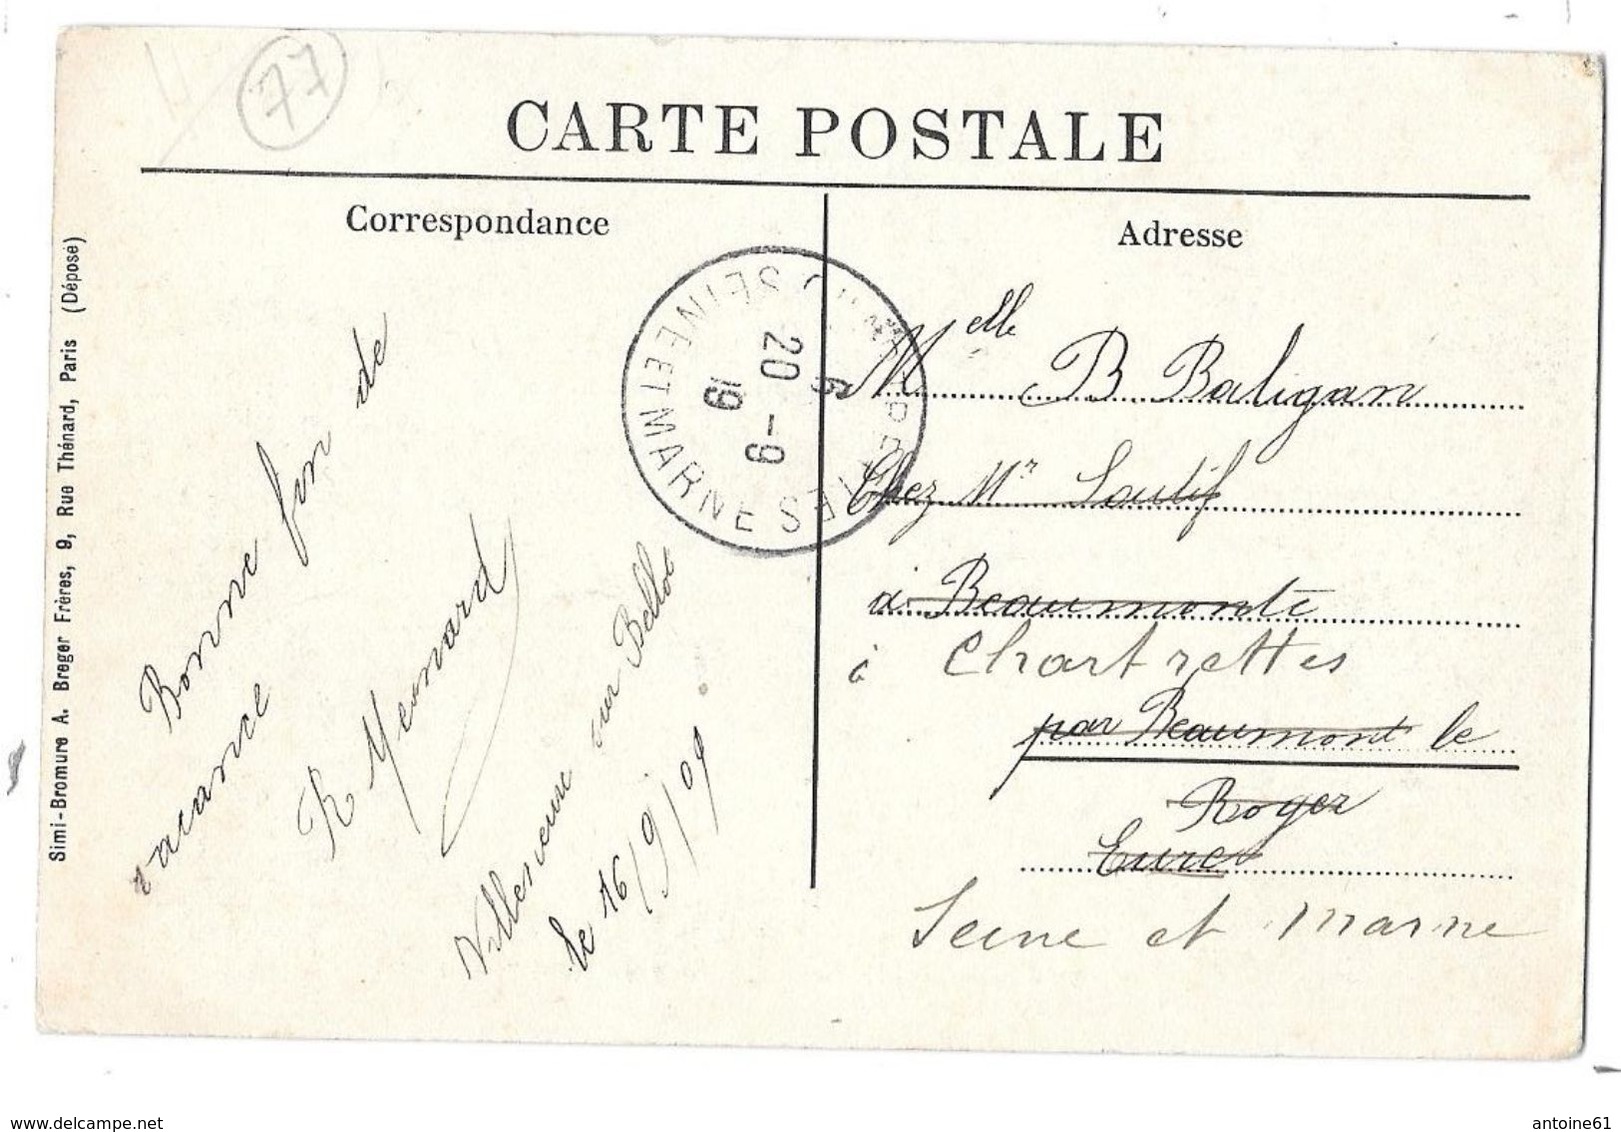 77
CARTE POSTALE
Correspondance
Adresse
Simi-Bromure A. Breger Frères, 9, Rue Thénard, Paris (Dépose)
Bonne fin de
vacance
R Mesnard
Villeneuve sur Bellot
le 16/9/09
SEINE ET MARNE
20 -9
19
Melle B Baligan
Chez Mr Soulif
à Beaumonte
à Chartrettes
par Beaumont le
Roger
Eure
Seine et Marne
www.delcampe.net
antoine61